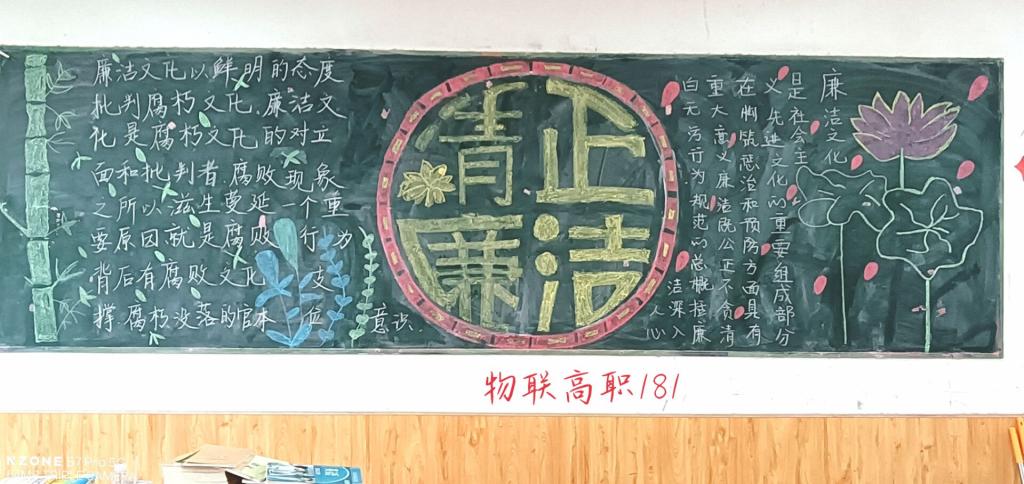 廉洁文化以鲜明的态度
批判腐朽文化.廉洁文
化是腐朽文化的对立
面和批判者.腐败现象
之所以滋生蔓延一个重
要原因就是腐败 行为
背后有腐败文化 支
撑.腐朽没落的官本 位 意识.
清正
廉洁
廉洁文化
是社会主
义先进文化的重要组成部分
在惩治和预防方面具有
重大意义廉洁既公正不贪清
白无污行为规范的总概括廉
洁深入
人心
物联高职181
KZONE S7 Pro 5G